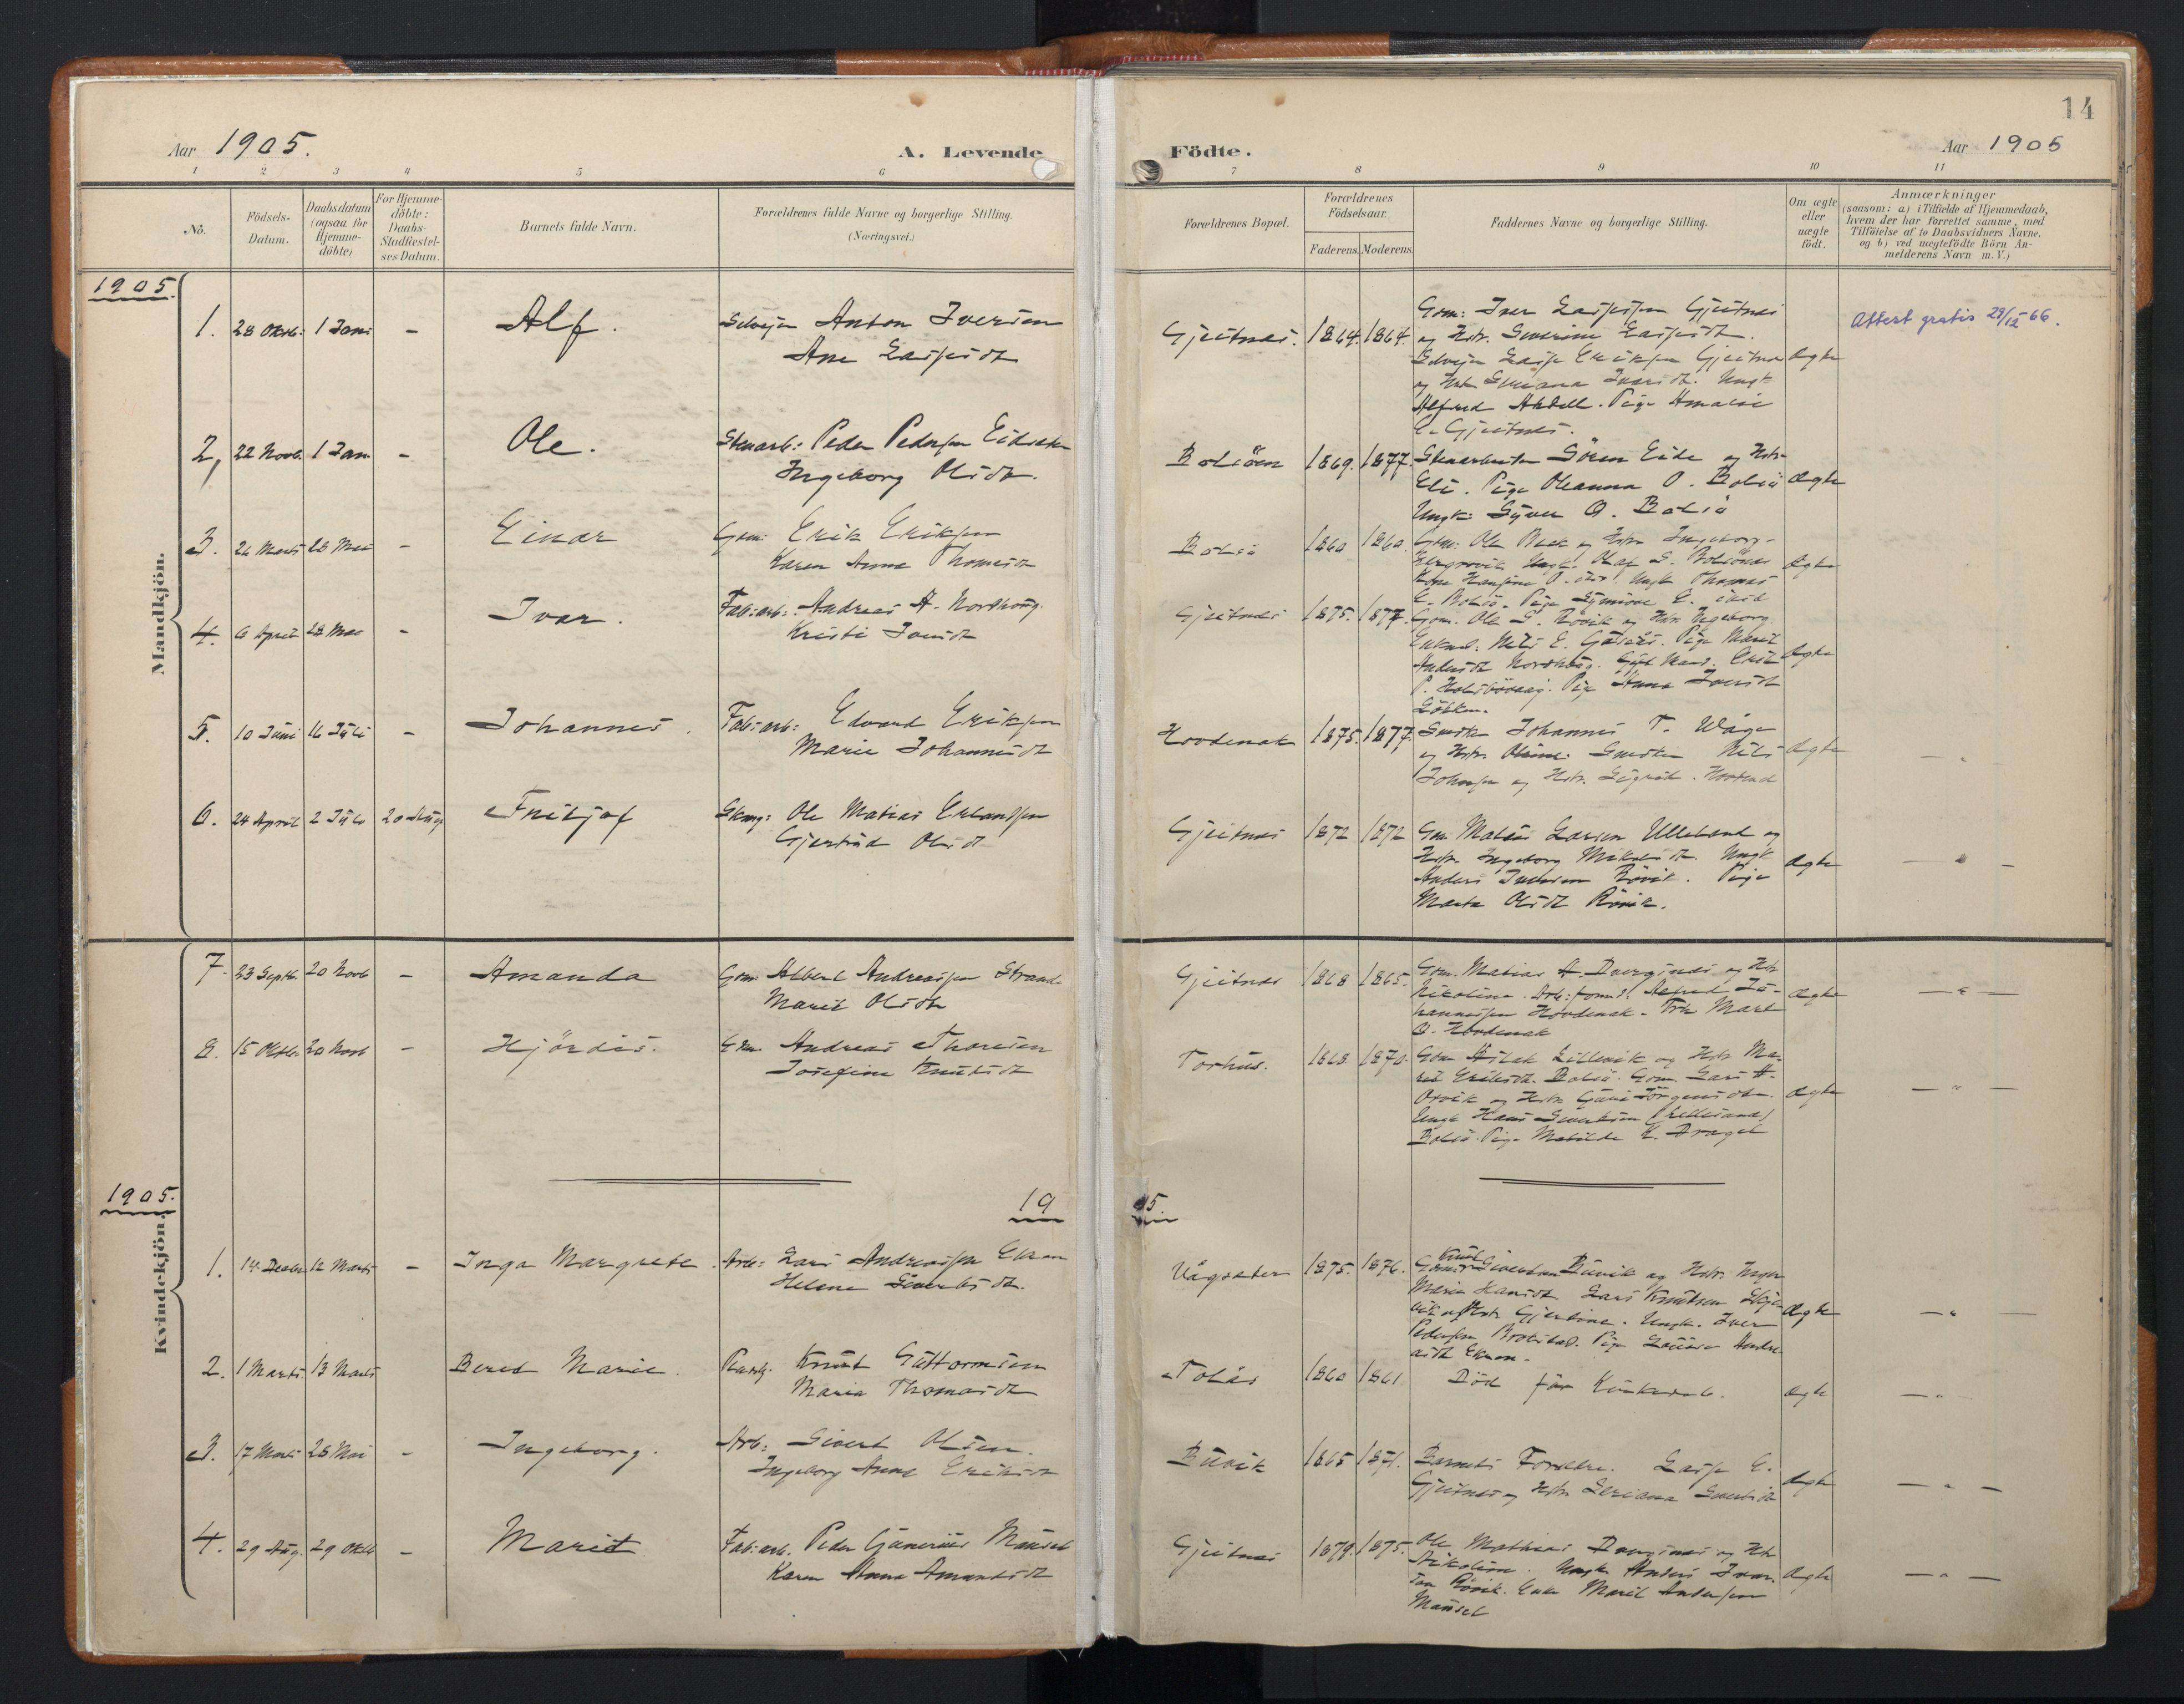 14
Aar 1905.
A. Levende
Födte.
Aar 1905
1 2 3 4 5 6
7 8 9 10 11
No.
Födsels-
Datum.
Daabsdatum
(ogsaa for
Hjemme-
döbte)
For Hjemme-
döbte:
Daabs-
Stadfæstel-
ses Datum.
Barnets fulde Navn.
Forældrenes fulde Navne og borgerlige Stilling.
(Næringsvei.)
Forældrenes Bopæl.
Forældrenes
Födselsaar.
Faderens. Moderens.
Faddernes Navne og borgerlige Stilling.
Om ægte
eller
uægte
födt.
Anmærkninger
(saasom: a) i Tilfælde af Hjemmedaab,
hvem der har forrettet samme, med
Tilföielse af to Daabsvidners Navne,
og b) ved uægtefödte Börn An-
melderens Navn m. V.)
1905.
Mandkjön.
1. 28 Oktb: 1 Jan: - Alf. Selvejer Anton Iversen
Ane Lassesdt
Gjeitnes. 1864. 1864.
Gom: Iver Lassessen Gjeitnes
og Hstr. Severine Lassesdt.
Selvejer Lasse Eriksen Gjeitnes
og Hstr Seriana Ivarsdt. Ungk.
Alfred Pige Amalie
E. Gjeitnes.
Ægte
Attest gratis 29/12 66.
2, 22 Novb. 1 Jan - Ole. Stenarb: Peder Pedersen Eidsæter
Ingeborg Olsdt.
Bolsöen 1869. 1877.
Stenarbeiter Sören Eide og Hstr
Eli. Pige Oleanna O. Bolsö
Ungk: Syver O. Bolsö
Ægte
3. 26 Marts 28 Mai - Einar Gom: Erik Eriksen
Karen Anna Thomasdt
Bolsö 1860 1860.
Gom: Ole Beck og Hstr Ingeborg
Ungk. Olaf S. Bolsönes
Kone Hansine O. ibid. Ungk Thomas
E. Bolsö. Pige Synnöve E. ibid
Ægte
4. 6 April 28 Mai - Ivar. Fab:arb: Andreas A. Nordhoug.
Kristi Iversdt
Gjeitnes 1875. 1877.
Gom. Ole S. Rövik og Hstr Ingeborg.
Enkem. Nils E. Pige Marit
Andersdt Nordhoug. Gift Mand. Erik
P. Pige Anna Iversdt
Ægte
5. 10 Juni 16 Juli - Johannes. Fab:arb: Edvard Eriksen
Marie Johannesdt
Hovdenak 1875. 1877.
Smeden Johannes T. Våge
og Hstr. Oline. Smeden Nils
Johnsen og Hstr. Sigrid.
Ægte - " -
6. 24 April 2 Juli 20 Aug. Fritjof Skomg: Ole Matias Erlandsen
Gjertrud Olsdt
Gjeitnes 1872 1872
Gom Matias Larsen Ulleland og
Hstr. Ingeborg Mikalsdt. Ungk
Anders Iversen Rövik. Pige
Marta Olsdt Rövik.
Ægte - " -
7. 23 Septb. 20 Novb - Amanda Gom: Albert Andreassen Strande
Marit Olsdtr
Gjeitnes 1868 1865.
Gom. Matias A. Dvergsnes og Hstr
Nikoline. Arb:formd. Jo-
hannessen Hovdenak. Frk Marit
O. Hovdenak
Ægte - " -
8. 15 Oktbr 20 Novb - Hjördis. Gom. Andreas Thoresen
Josefine Knutsdt
Torhus. 1868. 1870.
Gom Aslak Lillevik og Hstr Ma-
rit Eriksdt. Bolsö. Gom. Lars A.
Orvik og Hstr Guri Jörgensdtr.
Ungk Hans Sivertsen (Lillesand)
Bolsö. Pige Matilde K.
Ægte - " -
1905.
1905.
Kvindekjön.
1. 14 Decbr 12 Marts - Inga Margrete. Arb: Lars Andreassen Ekren
Helene Sivertsdt.
Vågsæter 1875. 1876.
Gom: Knut Sivertsen Buvik og Hstr. Inger
Maria Hansdt Lars Knutsen
og Hstr Gjertine. Ungk. Iver
Pedersen Pige Lovise Andre
asdt Ekren.
Ægte - " -
2. 1 Marts. 13 Marts - Beret Marie. Knut Guttormsen
Maria Thomasdt
Tolås 1860 1861. Död för Kirkedaab. Ægte - " -
3. 17 Marts 28 Mai - Ingeborg. Arb: Sivert Olsen.
Ingeborg Anna Eriksdt
Buvik 1865 1871.
Barnets Forældre. Lasse E.
Gjeitnes og Hstr Seriana Sivertsdt
Ægte - " -
4. 29 Aug. 29 Oktb - Marit Fab:arb. Peder Gunerius Mauset
Karen Anna Amundsdt
Gjeitnes 1879. 1875.
Ole Mathias Dvergsnes og Hstr
Nikoline. Ungk Anders Ivar-
sen Rövik. Enke Marit Andersen
Mauset
Ægte - " -